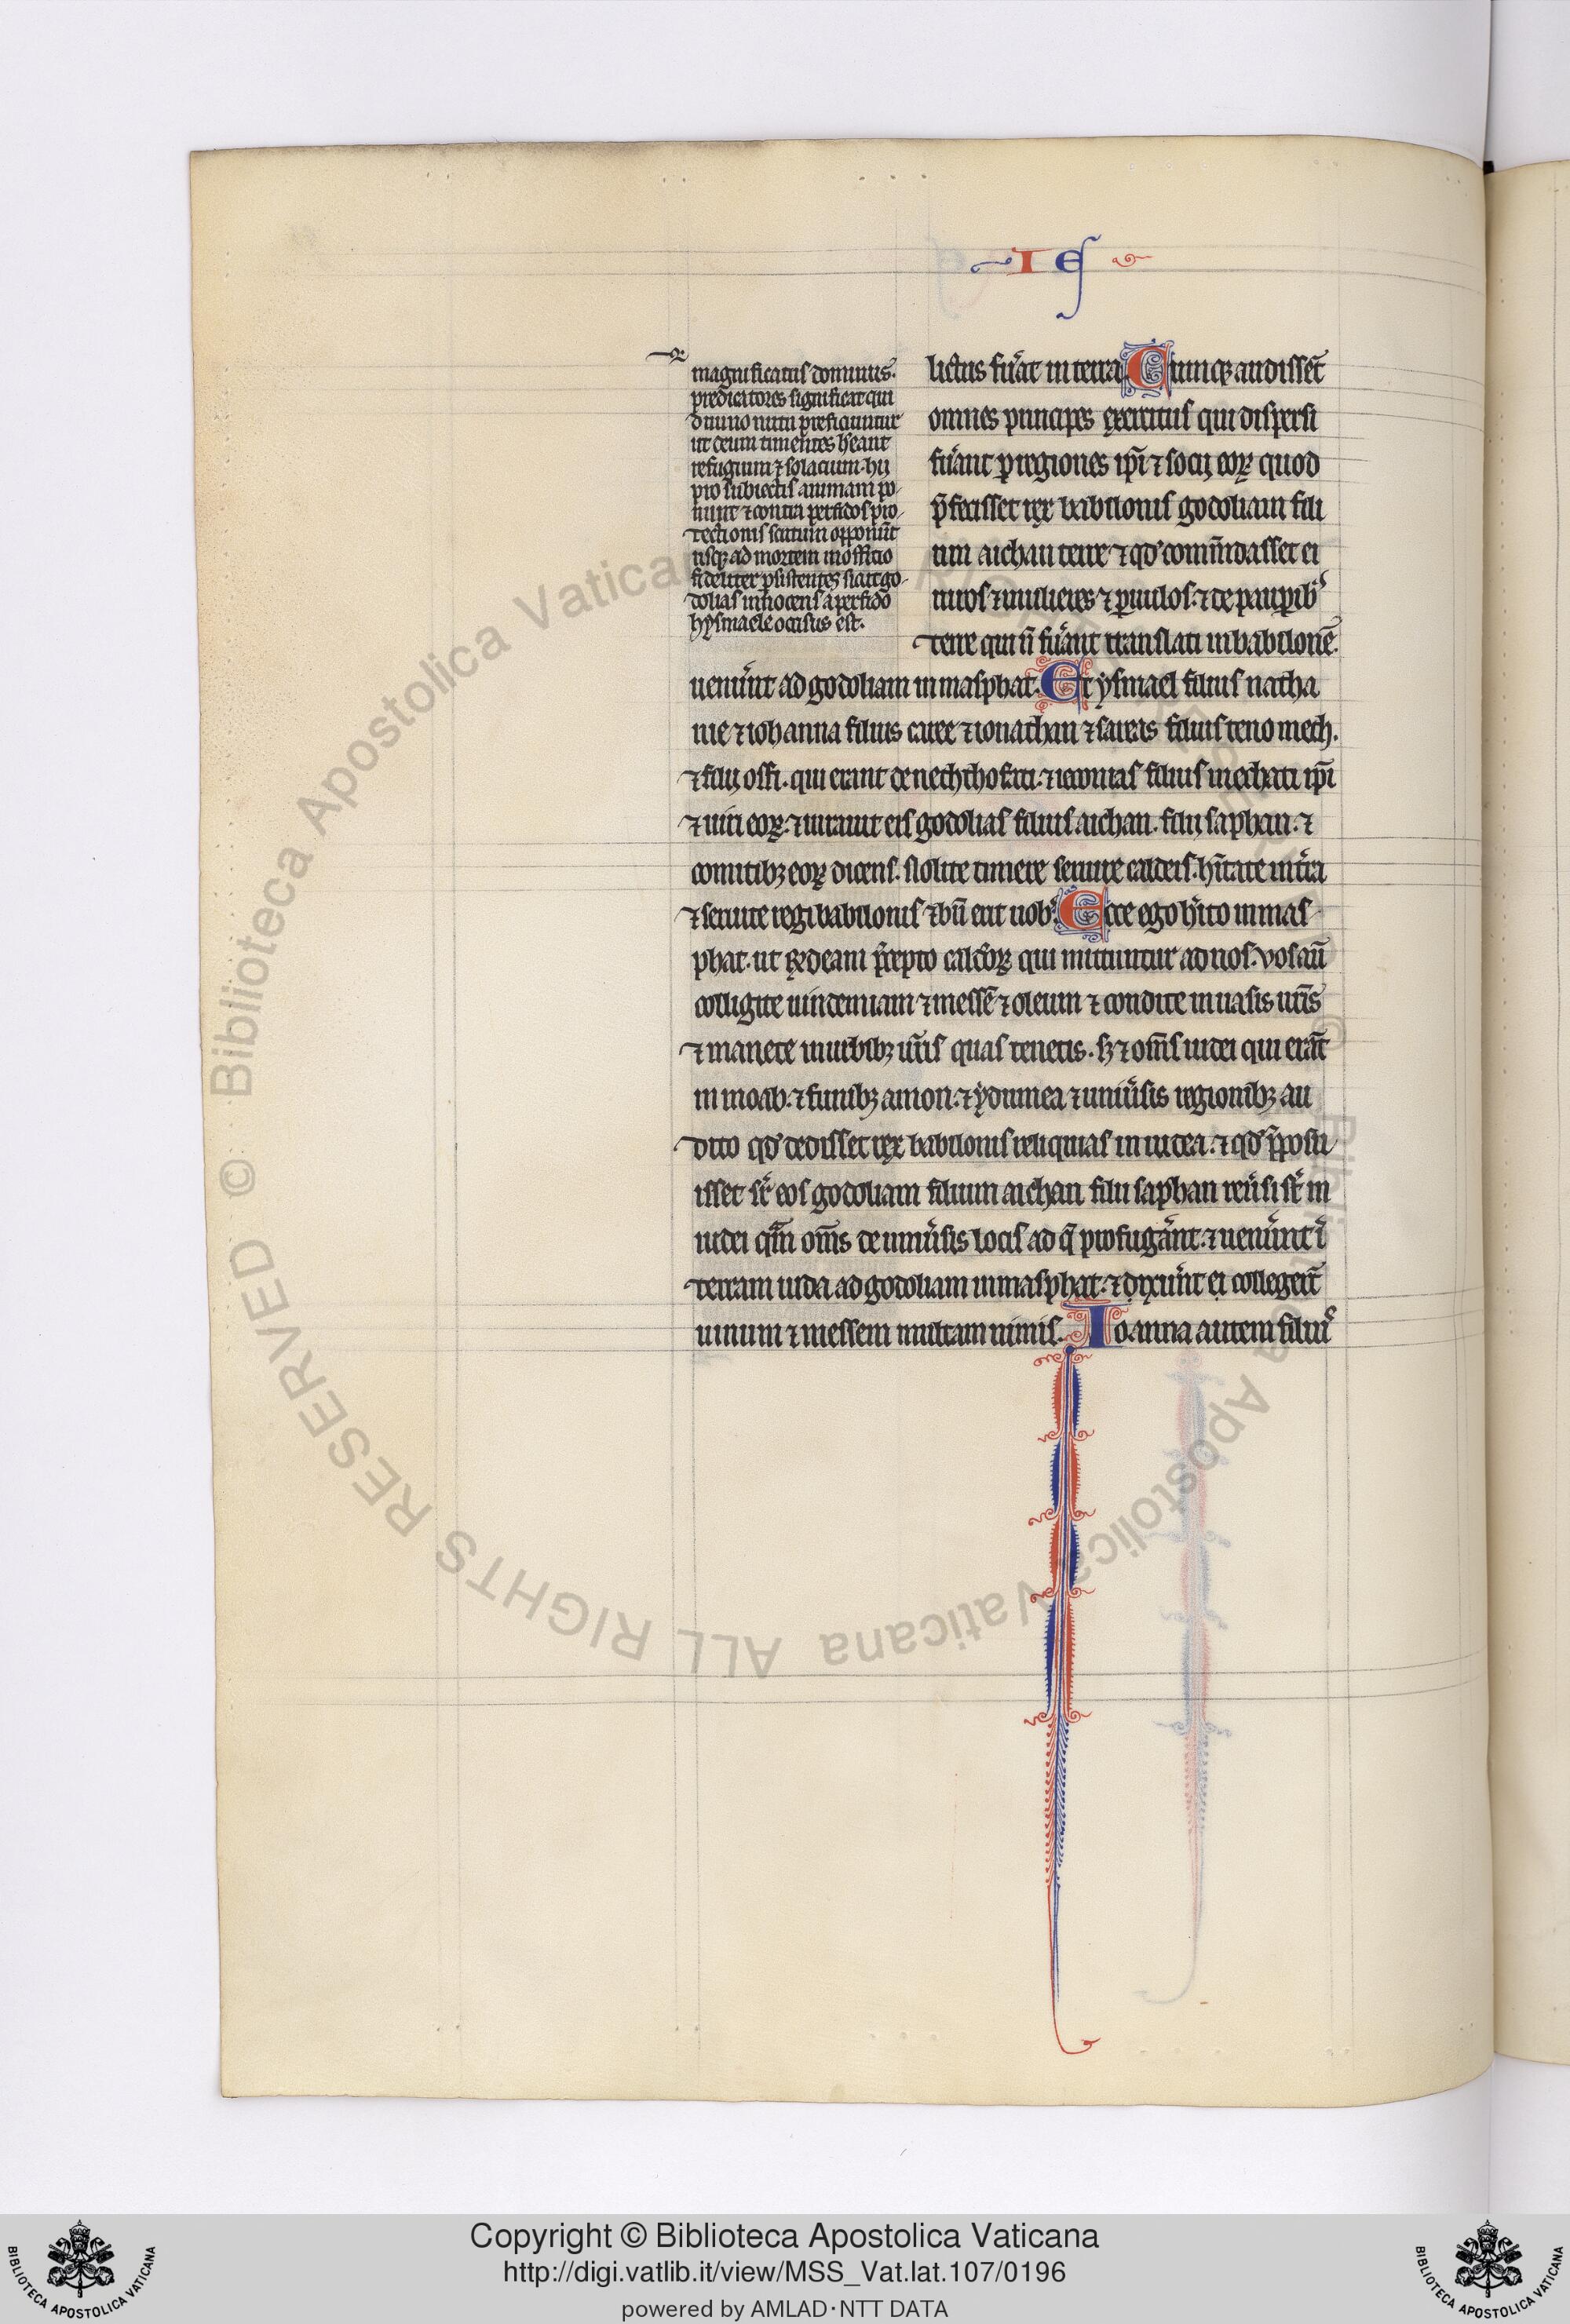 I E
magnificatus dominus.
predicatores significat qui
diuino nutu preficiuntur
ut deum timentes hẽant
refugium ⁊ solacium. hii
pro subiectis animam po
nunt ⁊ contra perfidos pro
tectionis scutum opponũt
usqꝫ ad mortem in officio
fidenter ꝑsistentes sicut go
dolias innocens a perfido
hysmaele occisus est.
lictus fu͛at in terra Cumqꝫ audissẽt
omnes principes exercitus qui dispersi
fu͛ant ꝑ regiones ip̃i ⁊ socij eoꝝ quod
p̃fecisset rex babilonis godoliam fili
um aichan terre ⁊ qd̾ com̃dasset ei
uiros ⁊ mulieres ⁊ paruulos. ⁊ de paupib᷒
terre qui ñ fu͛ant translati in babilonẽ.
uenu͛nt ad godoliam in masphat. Et ysmael filius natha
nie ⁊ iohanna filius caree ⁊ ionathan ⁊ sareas filius tenomech.
⁊ filij offi. qui erant de nechthofati. ⁊ ieconias filius mechati ip̃i
⁊ uiri eoꝝ. ⁊ iurauit eis godolias filius aichan. filii saphan. ⁊
comitibꝫ eoꝝ dicens. Nolite timere seruire caldeis. hĩtate in t͛ra
⁊ seruite regi babilonis ⁊ bñ erit uob᷒. Ecce ego h̃ito in mas
phat. ut r̃deam p̃cepto caldeoꝝ qui mittuntur ad nos. vos aũ
colligite uindemiam ⁊ messẽ ⁊ oleum ⁊ condite in uasis ur̃is
⁊ manete in urbibꝫ ur̃is quas tenetis. sꝫ ⁊ om̃s iudei qui erãt
in moab. ⁊ filiis amon. ⁊ ydumea ⁊ uniu͛sis regionibꝫ au
dito qd̾ dedisset rex babilonis reliquias in iudea. ⁊ qd̾ p̃posu
isset sr̃ eos godoliam filium aichan filii saphan reu͛si st̃
iudei om̃s de uniu͛sis locis ad q̃ profuga͛nt. ⁊ uenu͛nt ĩ
terram iuda ad godoliam in masphat. ⁊ collegerũt
uinum ⁊ messem multam nimis. Ioanna autem filiu᷒
Copyright © Biblioteca Apostolica Vaticana
http://digi.vatlib.it/view/MSS_Vat.lat.107/0196
powered by AMLAD·NTT DATA
BIBLIOTECA APOSTOLICA VATICANA
BIBLIOTECA APOSTOLICA VATICANA
© Biblioteca Apostolica Vaticana ALL RIGHTS RESERVED